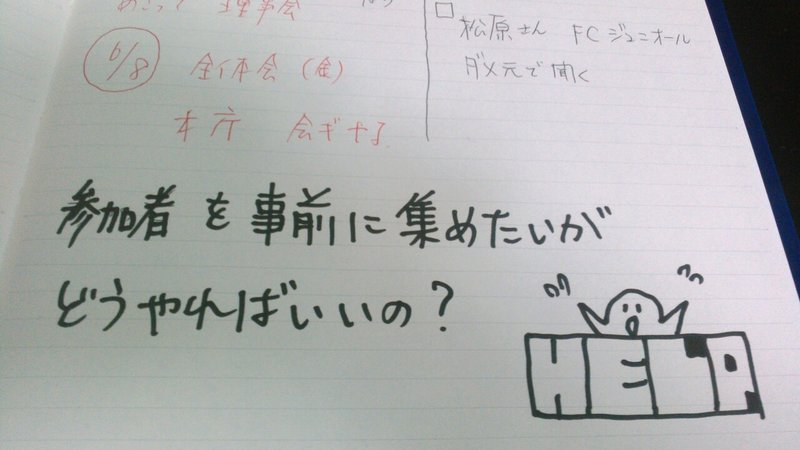 理事会
6/8 全体会(金)
本庁 会ギする
松原さん FCジュニオール
ダメ元で聞く
参加者を事前に集めたいが
どうやればいいの?
HELP